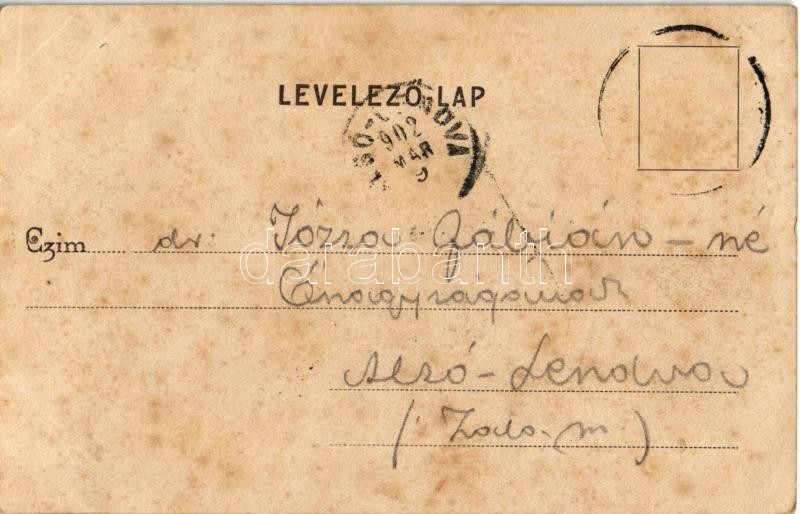 LEVELEZŐ-LAP
902
MAR
9
Czim dr. Józsa Fábián-né
Őnagyságának
Alsó-Lendva
(Zala m.)
darabanth